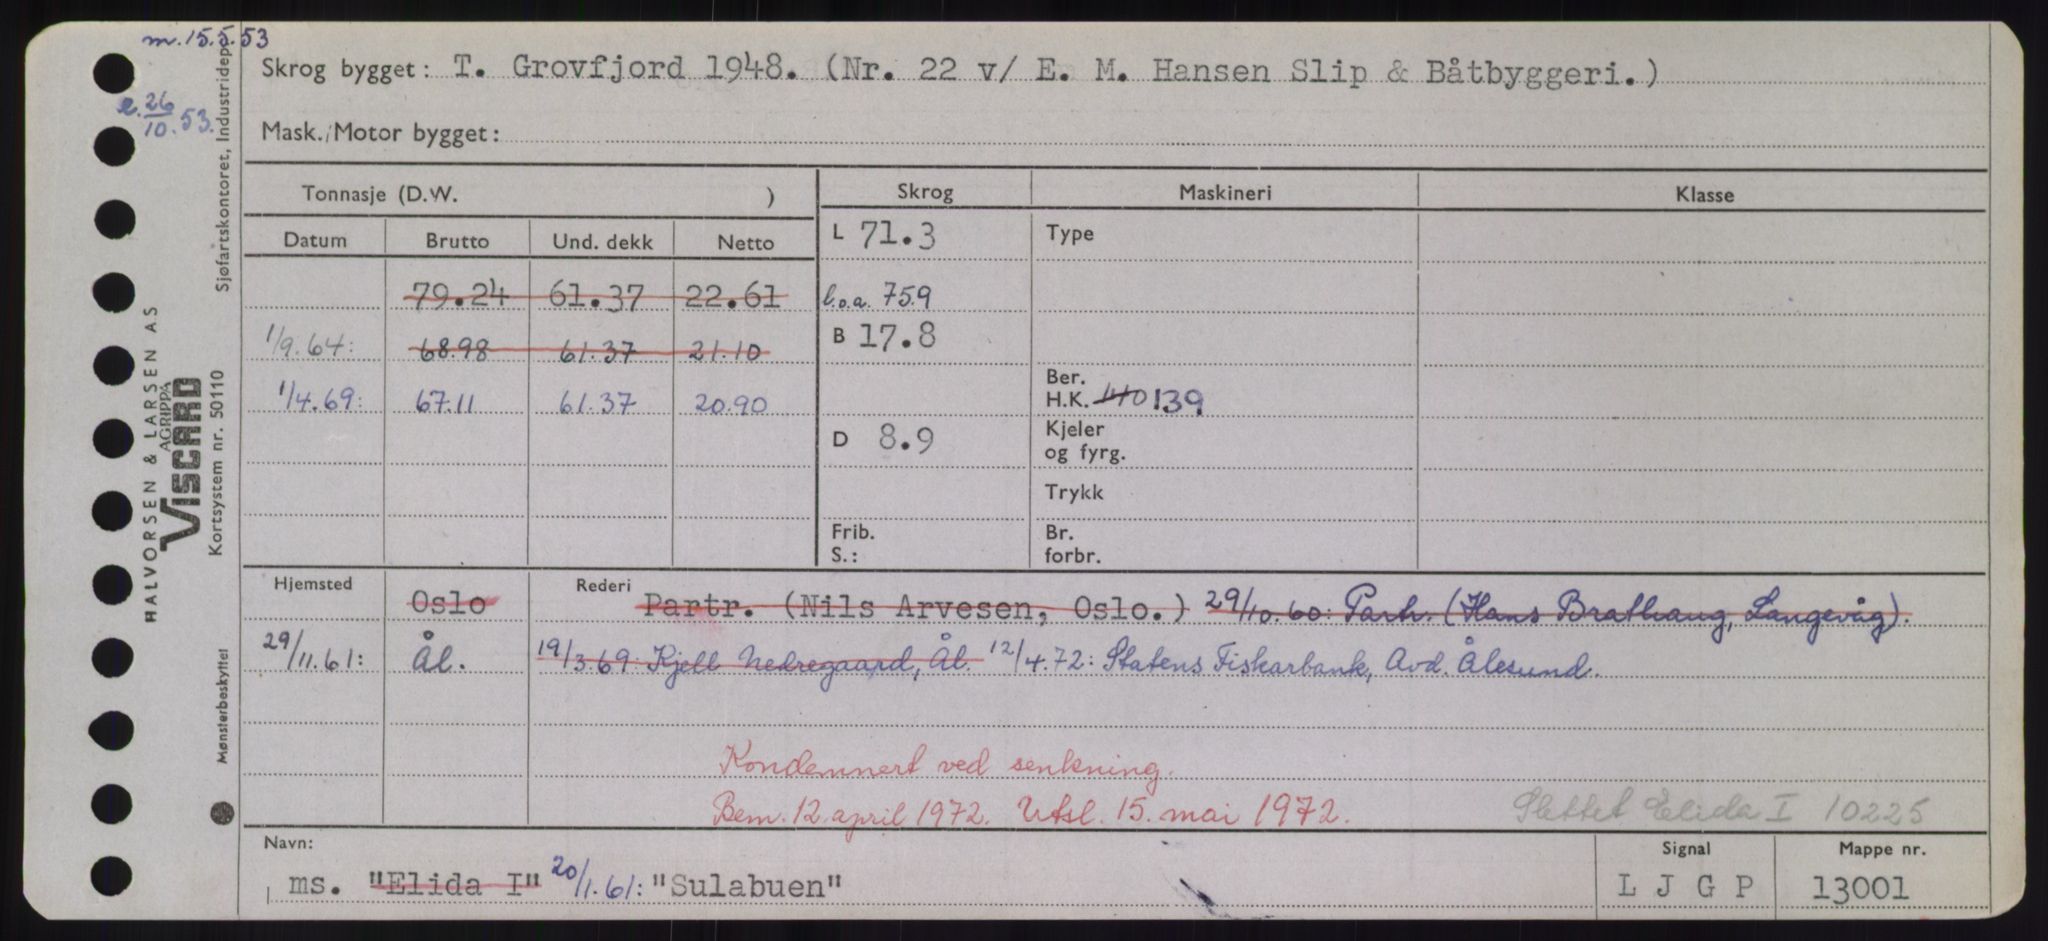 m. 15.5.53
e. 26/10.53.
Skrog bygget: T. Grovfjord 1948. (Nr. 22 v/ E. M. Hansen Slip & Båtbyggeri.)
Mask./Motor bygget:
Tonnasje (D.W. )
Datum Brutto Und. dekk Netto
79.24 61.37 22.61
1/9.64: 68.98 61.37 21.10
1/4.69: 67.11 61.37 20.90
Skrog
L 71.3
l.o.a. 75.9
B 17.8
D 8.9
Frib.
S.:
Maskineri
Type
Ber.
H.K. 110 139
Kjeler
og fyrg.
Trykk
Br.
forbr.
Klasse
Hjemsted Oslo Rederi Partr. (Nils Arvesen, Oslo.) 29/10.60: Partr. (Hans Brathaug, Langevåg).
29/11.61: Ål. 19/3.69: Kjell Nedregaard, Ål. 12/4.72: Statens Fiskarbank, Avd. Ålesund.
Kondemnert ved senkning.
Bem. 12. april 1972. Utsl. 15. mai 1972.
Slettet Elida I 10225
Navn:
ms. "Elida I" 20/1.61: "Sulabuen"
Signal
L J G P
Mappe nr.
13001
Sjøfartskontoret, Industridep.
HALVORSEN & LARSEN AS
AGRIPPA
VISCARD
Kortsystem nr. 50110
Mønsterbeskyttet